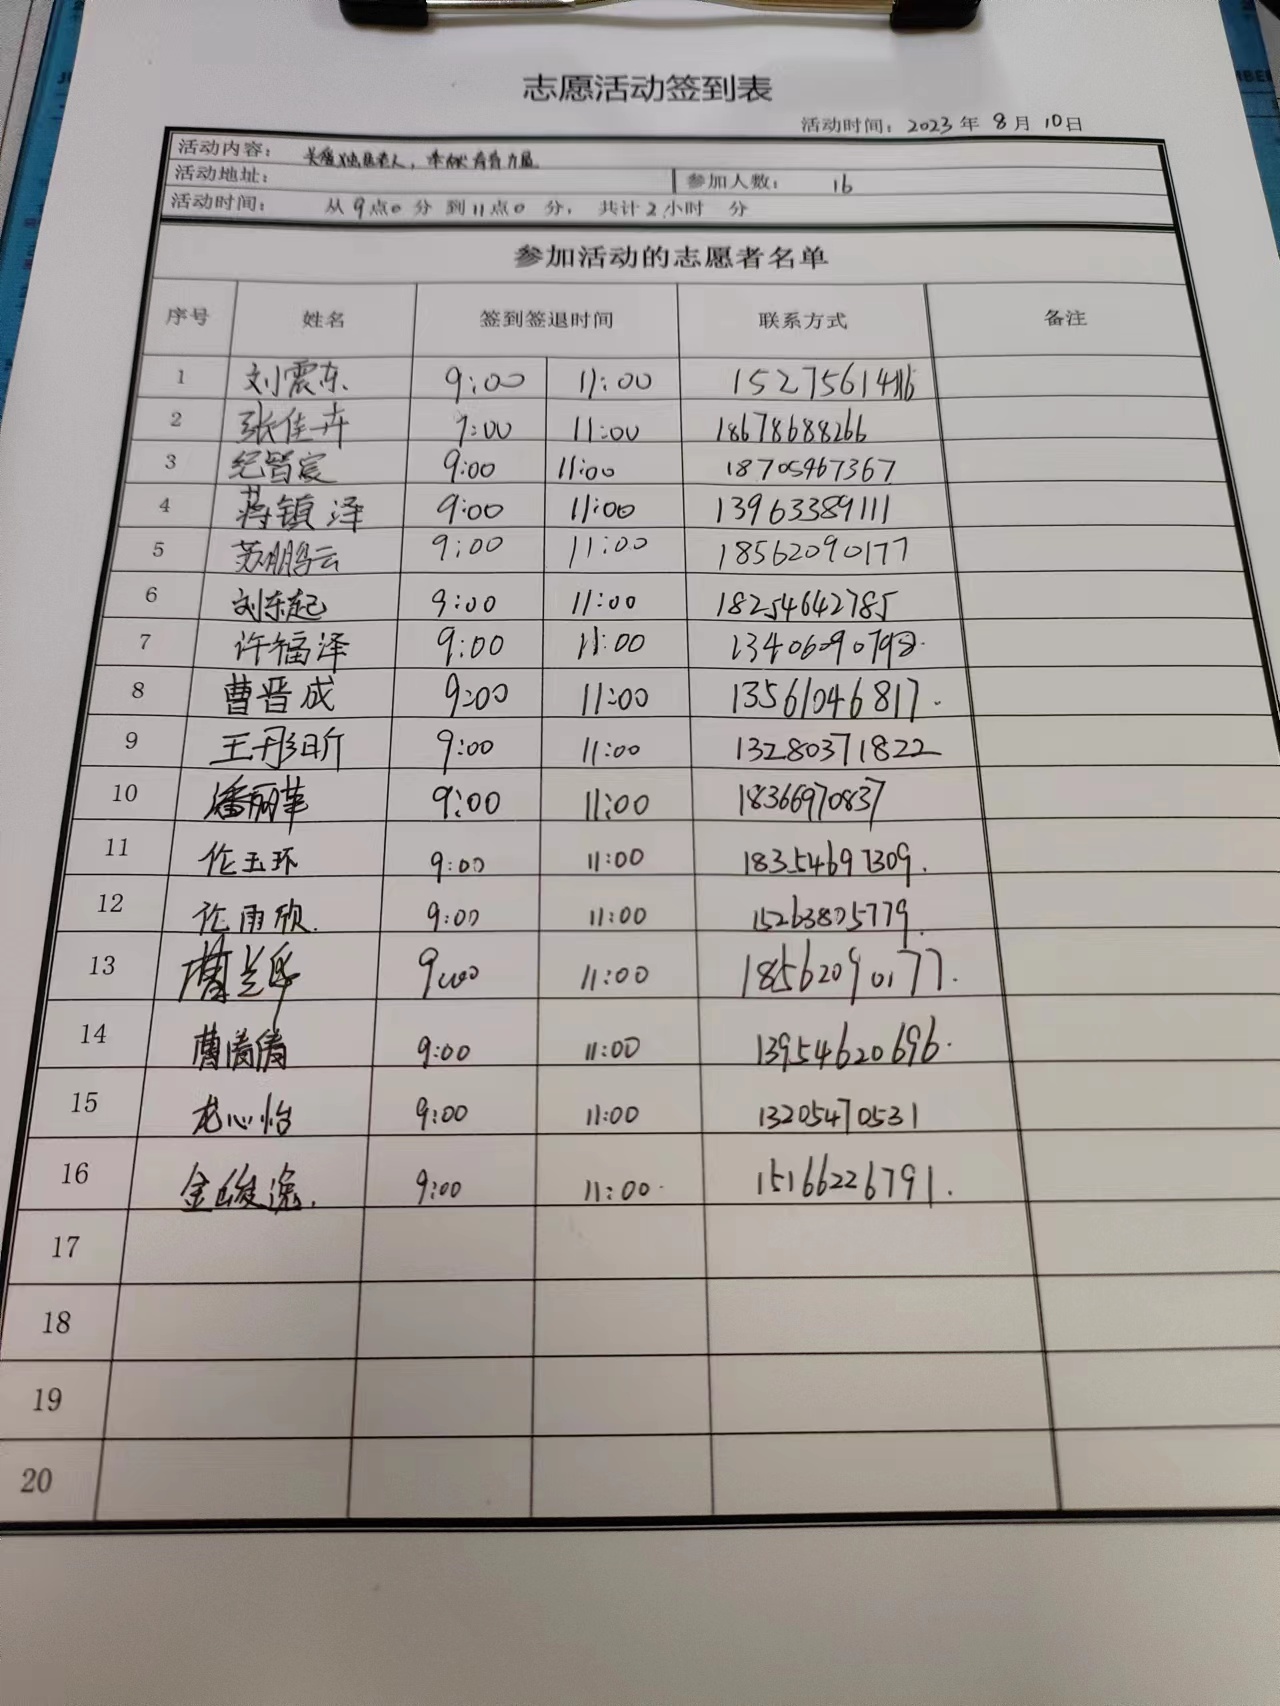 志愿活动签到表
活动时间：2023年 8月 10日
活动内容：关爱独居老人，奉献青春力量
活动地址： 参加人数： 16
活动时间： 从9点0分 到11点0 分， 共计2小时 分
参加活动的志愿者名单
序号 姓名 签到签退时间 联系方式 备注
1 刘震东 9:00 11:00
2 张佳卉 9:00 11:00 18678688266
3 9:00 11:00 18705467367
4 蒋镇泽 9:00 11:00 13963389111
5 苏鹏云 9:00 11:00 18562090177
6 刘东起 9:00 11:00 18254642785
7 许福泽 9:00 11:00
8 曹晋成 9:00 11:00 13561046817.
9 王彤昕 9:00 11:00 13280371822
10 潘丽苹 9:00 11:00 18366970837
11 伦玉环 9:00 11:00 18354697309.
12 9:00 11:00 15263805779.
13 9:00 11:00 18562090177.
14 曹倩倩 9:00 11:00 13954620696.
15 龙心怡 9:00 11:00 13205470531
16 9:00 11:00. 15166226791.
17
18
19
20